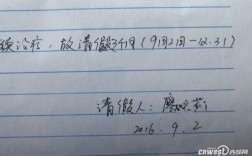 续治疗，故请假3个月（9月2日-12.31）
请假人：廖
2016.9.2
cnwest西部网